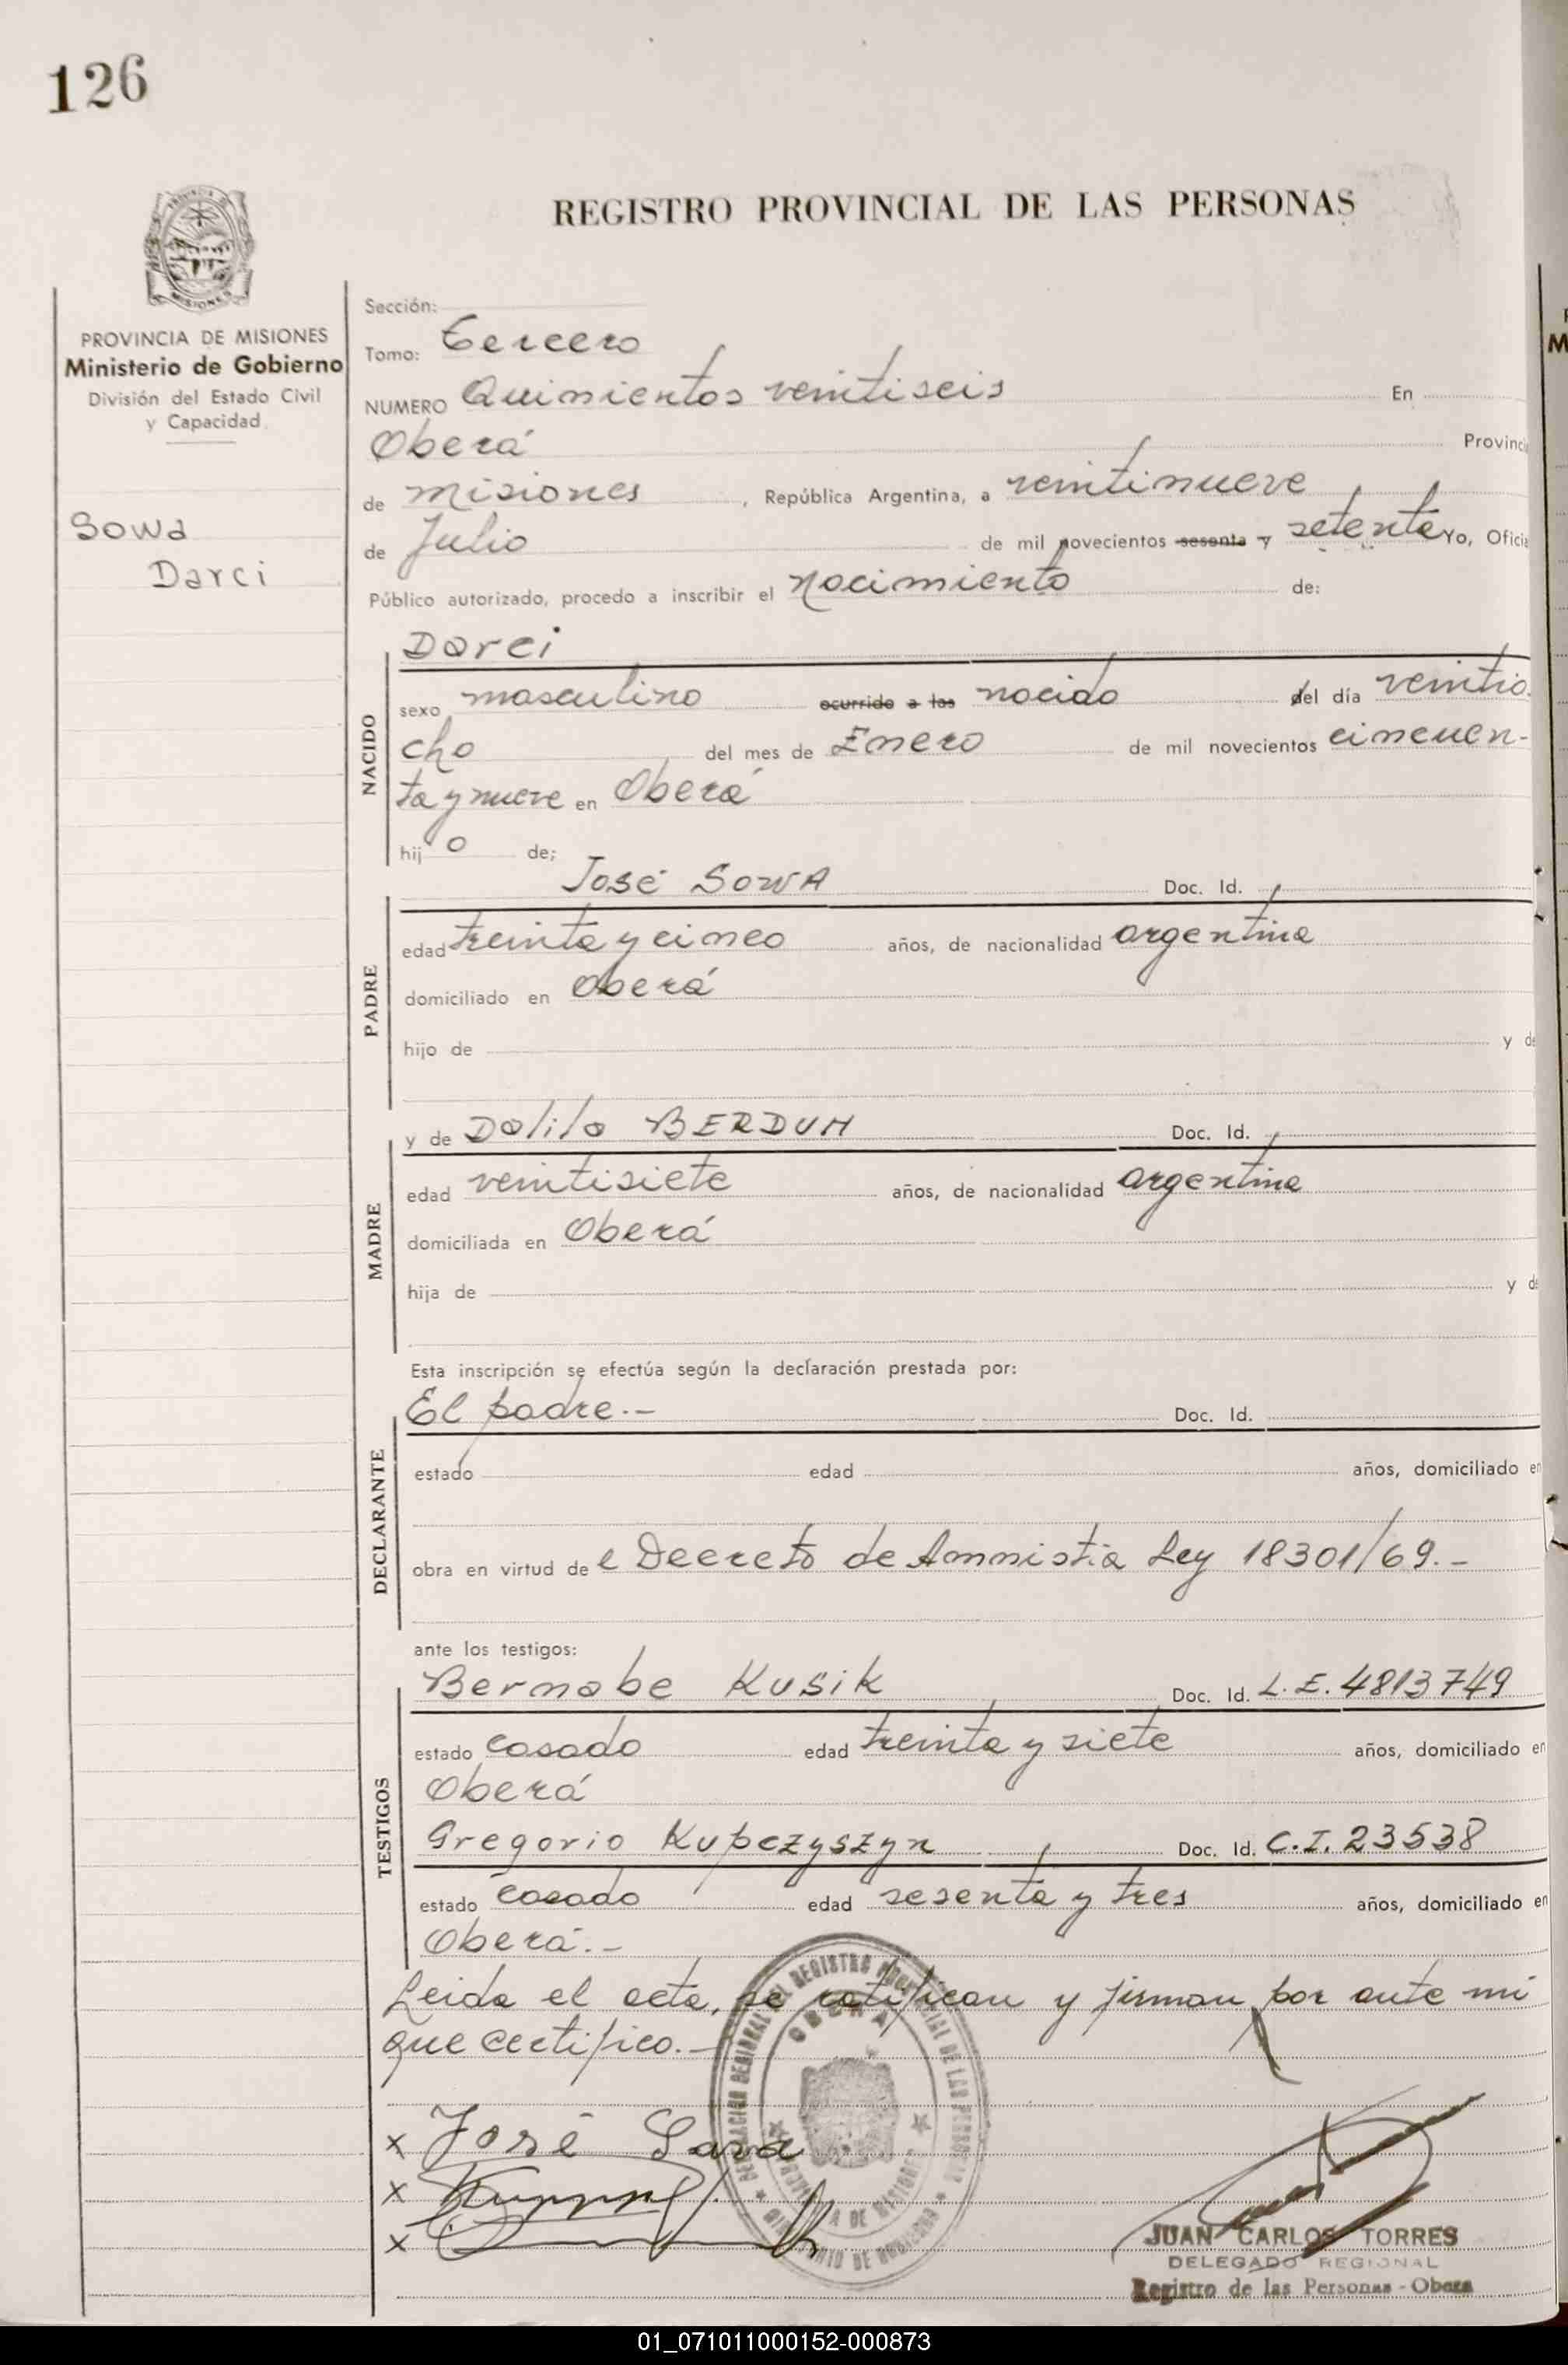 126
REGISTRO PROVINCIAL DE LAS PERSONAS
MISIONES
PROVINCIA DE MISIONES
Ministerio de Gobierno
División del Estado Civil
y Capacidad
Sowa
Darci
Sección:
Tomo: tercero
NUMERO Quinientos veintiseis En
Oberá Provinci
de Misiones, República Argentina, a veintinueve
de Julio de mil novecientos sesenta y setenta Yo, Oficia
Público autorizado, procedo a inscribir el nacimiento de:
NACIDO
Darci
sexo masculino ocurrido a las nacido del día veintio
cho del mes de Enero de mil novecientos cincuen-
ta y nueve en Oberá
hij o de;
PADRE
José SOWA Doc. Id.
edad treinta y cinco años, de nacionalidad argentina
domiciliado en Oberá
hijo de y de
MADRE
y de Dalila BERDUN Doc. Id.
edad veintisiete años, de nacionalidad argentina
domiciliada en Oberá
hija de y de
Esta inscripción se efectúa según la declaración prestada por:
DECLARANTE
El padre.- Doc. Id.
estado edad años, domiciliado en
obra en virtud de l Decreto de Amnistia Ley 18301/69.-
ante los testigos:
TESTIGOS
Bernabe Kusik Doc. Id. L.E. 4813749
estado casado edad treinta y siete años, domiciliado en
Oberá
Gregorio Kupczyszyn Doc. Id. C.I. 23538
estado casado edad sesenta y tres años, domiciliado en
Oberá.-
Leida el acta, se ratifican y firman por ante mi
que certifico.-
x José Sava
x
x
OBERA
JUAN CARLOS TORRES
DELEGADO REGIONAL
Registro de las Personas - Obera
01_071011000152-000873